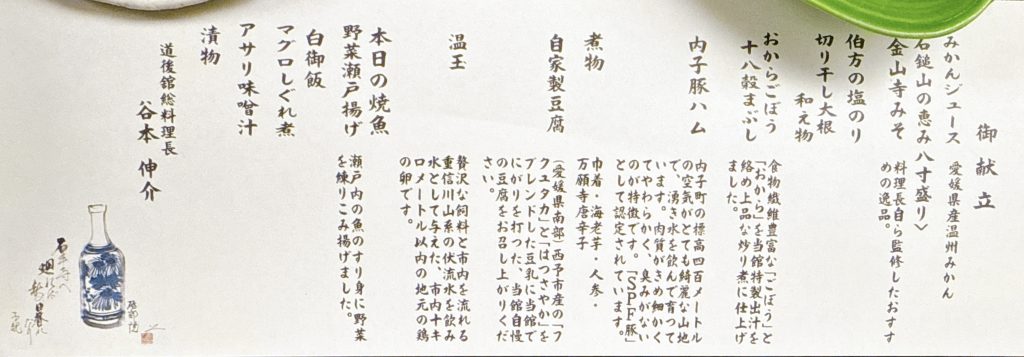 御献立
みかんジュース
愛媛県産温州みかん
石鎚山の恵み八十盛り〉
金山寺みそ
料理長自ら監修したおすす
めの逸品。
伯方の塩のり
切り干し大根
和え物
おからごぼう
十八穀まぶし
食物繊維豊富な「ごぼう」と
「おから」を当館特製出汁を
絡め上品な炒り煮に仕上げ
ました。
内子豚ハム
内子町の標高四百メートル
の空気がとても綺麗な山地
で、湧き水を飲んで育ってい
います。肉質がきめ細かく
てやわらかく、臭みがない
のが特徴です。「SPF豚」
として認定されています。
煮物
巾着・海老芋・人参・
万願寺唐辛子
自家製豆腐
(愛媛県南部)西予市産の「フ
クユタカ」と「はつさやか」を
ブレンドした豆乳に当館で
にがりを打った、当館自慢
の豆腐をお召し上がりくだ
さい。
温玉
贅沢な飼料と市内を流れる
重信川山系の伏流水を飲み
水として与えた、市内十キ
ロメートル以内の地元の鶏
の卵です。
本日の焼魚
野菜瀬戸揚げ
瀬戸内の魚のすり身に野菜
を練りこみ揚げました。
白御飯
マグロしぐれ煮
アサリ味噌汁
漬物
道後舘総料理長
谷本 伸介